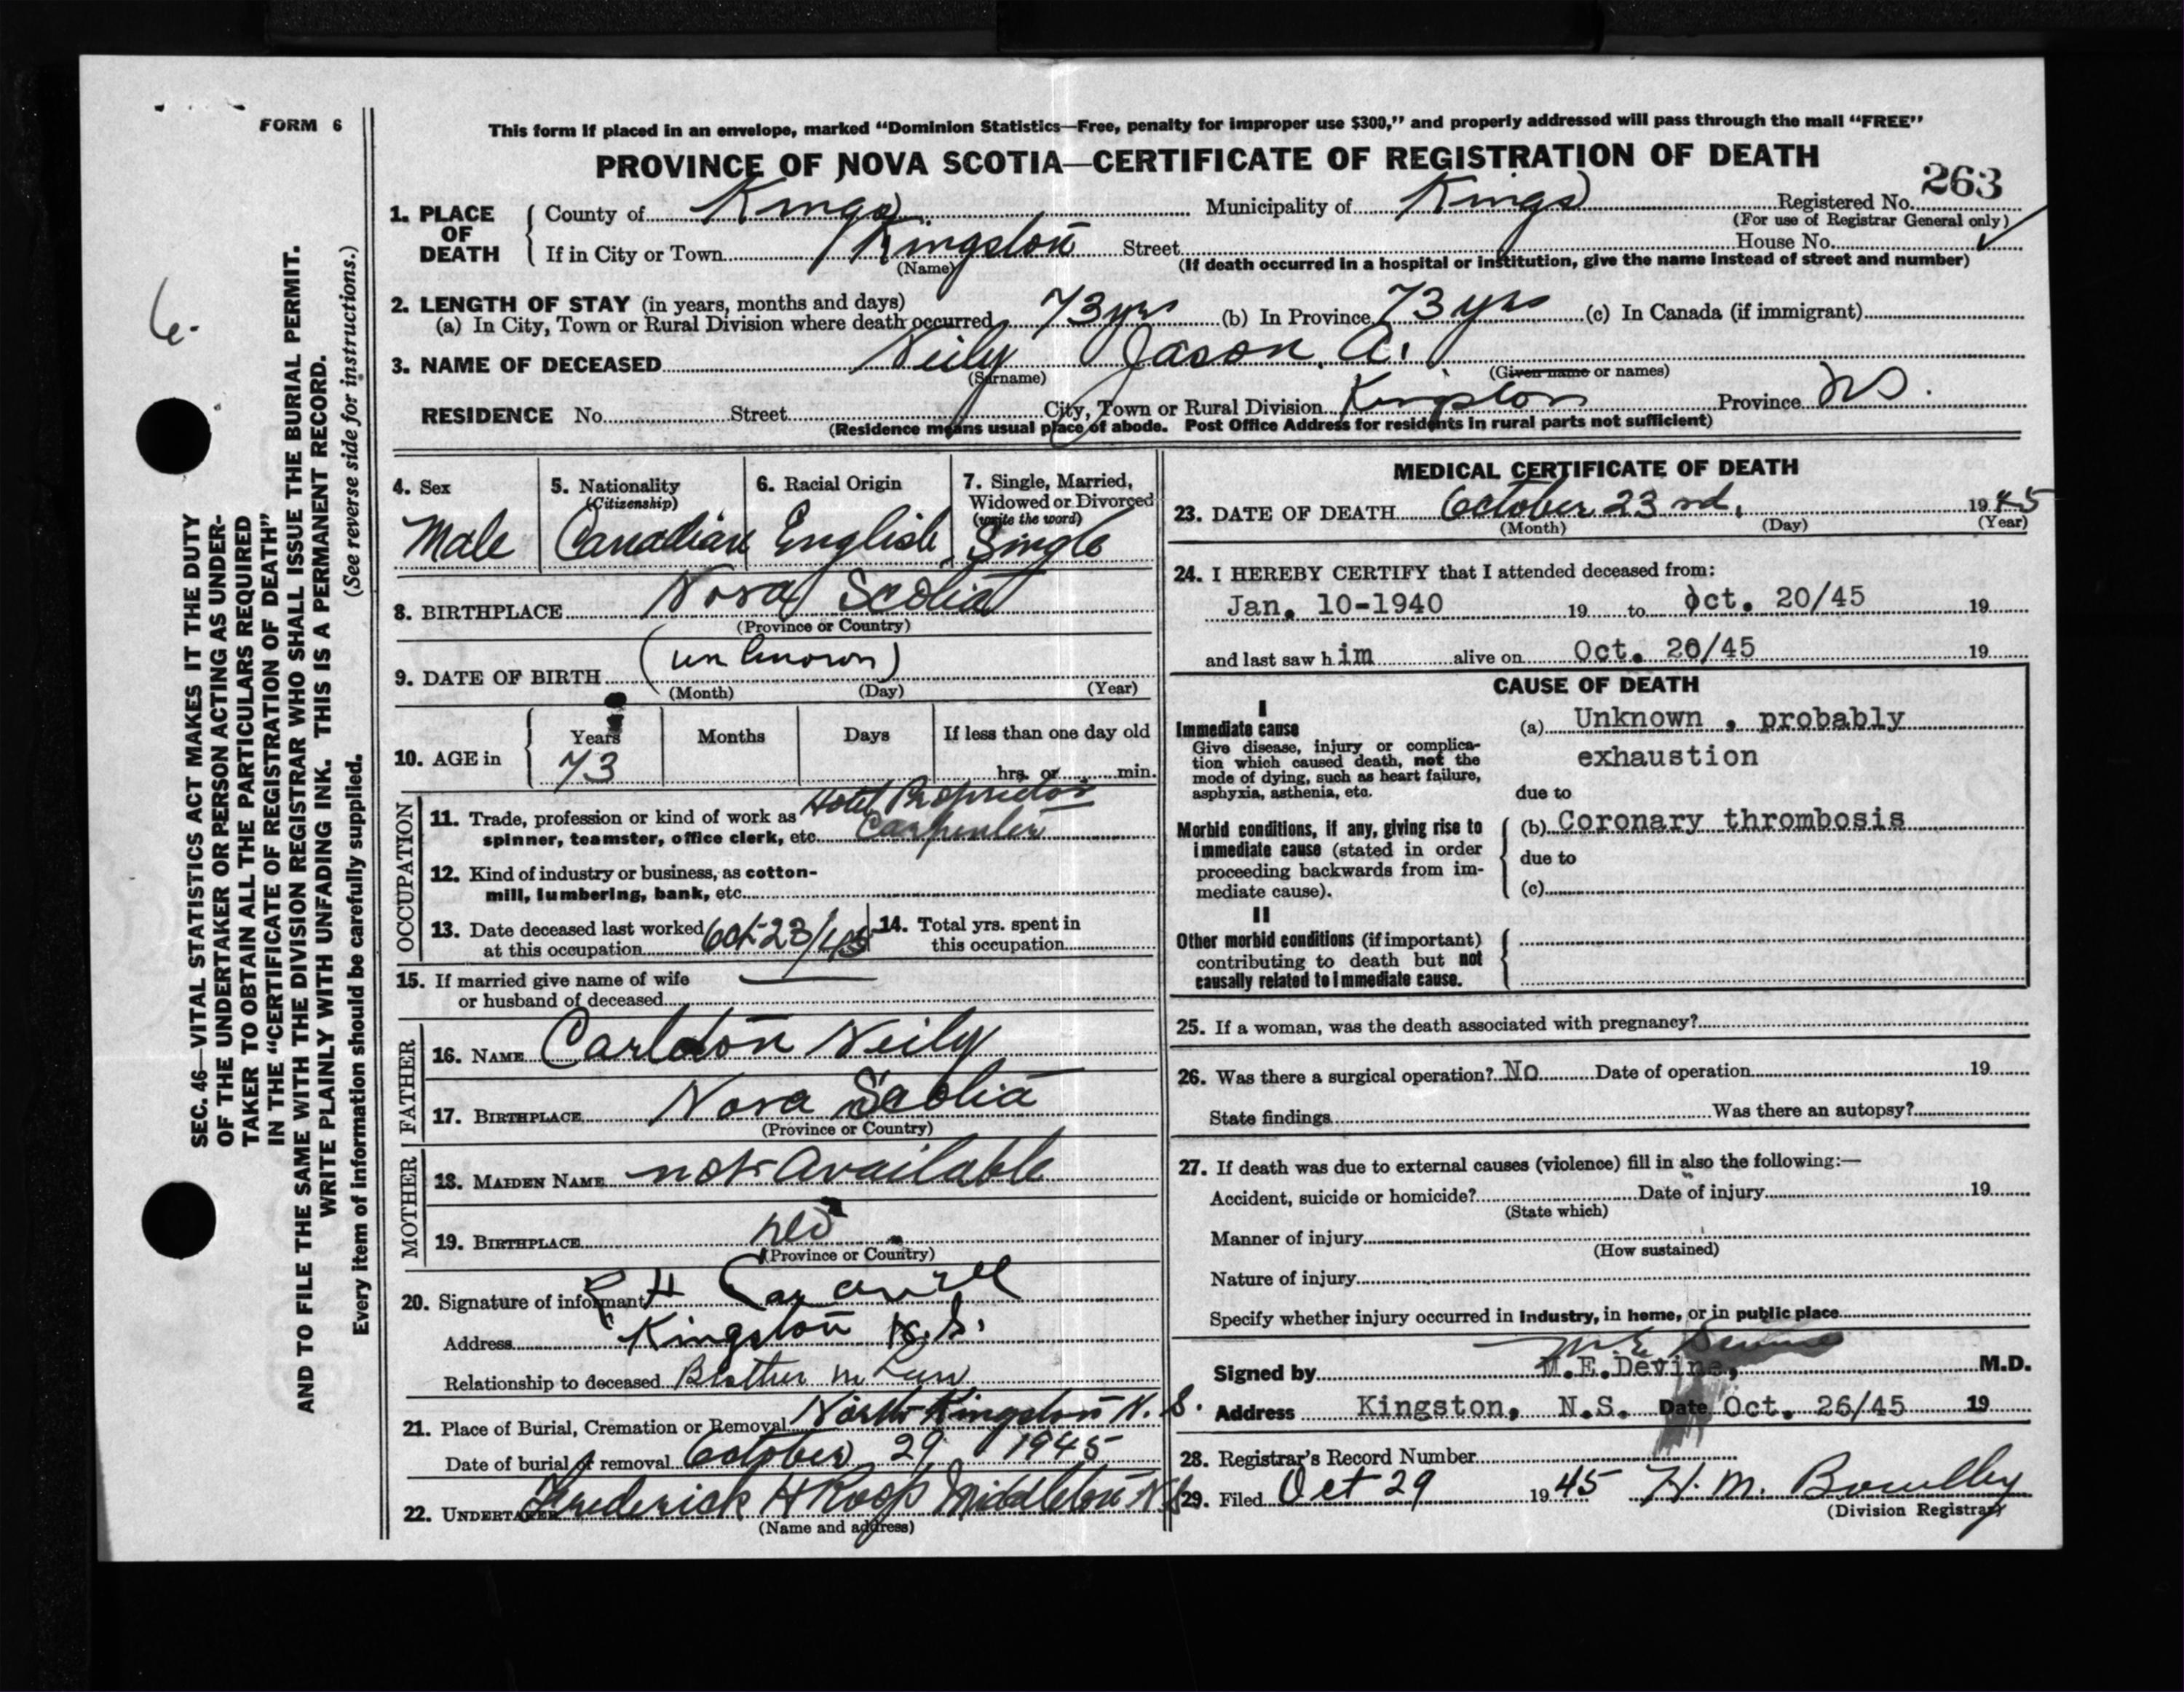 FORM 6
This form if placed in an envelope, marked “Dominion Statistics—Free, penalty for improper use $300,” and properly addressed will pass through the mail “FREE”
PROVINCE OF NOVA SCOTIA—CERTIFICATE OF REGISTRATION OF DEATH
263
1. PLACE OF DEATH { County of Kings Municipality of Kings Registered No.
(For use of Registrar General only)
If in City or Town Kingston Street House No. ✓
(Name) (If death occurred in a hospital or institution, give the name instead of street and number)
2. LENGTH OF STAY (in years, months and days)
(a) In City, Town or Rural Division where death occurred 73 yrs (b) In Province 73 yrs (c) In Canada (if immigrant)
3. NAME OF DECEASED Neily Jason A.
(Surname) (Given name or names)
RESIDENCE No. Street City, Town or Rural Division Kingston Province NS.
(Residence means usual place of abode. Post Office Address for residents in rural parts not sufficient)
4. Sex
Male
5. Nationality
(Citizenship)
Canadian
6. Racial Origin
English
7. Single, Married,
Widowed or Divorced
(write the word)
Single
8. BIRTHPLACE Nova Scotia
(Province or Country)
9. DATE OF BIRTH (unknown)
(Month) (Day) (Year)
10. AGE in { Years Months Days If less than one day old
73 hrs. or min.
OCCUPATION
11. Trade, profession or kind of work as Hotel Proprietor
spinner, teamster, office clerk, etc. Carpenter
12. Kind of industry or business, as cotton-
mill, lumbering, bank, etc.
13. Date deceased last worked
at this occupation Oct 23/45
14. Total yrs. spent in
this occupation
15. If married give name of wife
or husband of deceased
FATHER
16. NAME Carleton Neily
17. BIRTHPLACE Nova Scotia
(Province or Country)
MOTHER
18. MAIDEN NAME not available
19. BIRTHPLACE
(Province or Country)
20. Signature of informant H
Address Kingston N.S.
Relationship to deceased Brother in Law
21. Place of Burial, Cremation or Removal North Kingston N.S.
Date of burial or removal October 29, 1945
22. UNDERTAKER Frederick H Roop Middleton N.S
(Name and address)
MEDICAL CERTIFICATE OF DEATH
23. DATE OF DEATH October 23rd, 1945
(Month) (Day) (Year)
24. I HEREBY CERTIFY that I attended deceased from:
Jan. 10-1940 19 to Oct. 20/45 19
and last saw him alive on Oct. 20/45 19
CAUSE OF DEATH
I
Immediate cause
Give disease, injury or complica-
tion which caused death, not the
mode of dying, such as heart failure,
asphyxia, asthenia, etc.
(a) Unknown , probably
exhaustion
due to
Morbid conditions, if any, giving rise to
immediate cause (stated in order
proceeding backwards from im-
mediate cause).
(b) Coronary thrombosis
due to
(c)
II
Other morbid conditions (if important)
contributing to death but not
causally related to immediate cause.
25. If a woman, was the death associated with pregnancy?
26. Was there a surgical operation? No Date of operation 19
State findings Was there an autopsy?
27. If death was due to external causes (violence) fill in also the following:—
Accident, suicide or homicide? Date of injury 19
(State which)
Manner of injury
(How sustained)
Nature of injury
Specify whether injury occurred in industry, in home, or in public place
M. E. Devine
Signed by M.E.Devine, M.D.
Address Kingston, N.S. Date Oct. 26/45 19
28. Registrar’s Record Number
29. Filed Oct 29 1945 H. M.
(Division Registrar)
SEC. 46—VITAL STATISTICS ACT MAKES IT THE DUTY
OF THE UNDERTAKER OR PERSON ACTING AS UNDER-
TAKER TO OBTAIN ALL THE PARTICULARS REQUIRED
IN THE “CERTIFICATE OF REGISTRATION OF DEATH”
AND TO FILE THE SAME WITH THE DIVISION REGISTRAR WHO SHALL ISSUE THE BURIAL PERMIT.
WRITE PLAINLY WITH UNFADING INK. THIS IS A PERMANENT RECORD.
(See reverse side for instructions.)
Every item of information should be carefully supplied.